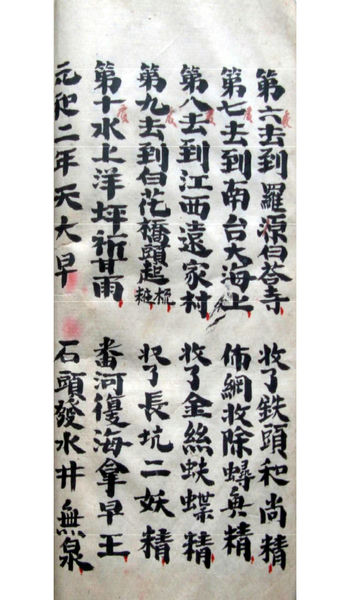 第六度去到羅源白荅寺 收了鉄頭和尚精
第七度去到南台大海上 佈網收除蟳魚精
第八度去到江西遠家村 收了金絲蚨蝶精
第九度去到白花橋頭起梳粧 收了長坑二妖精
第十度水上洋坪祈甘雨 番河復海拿早王
元和二年天大早 石頭發水井無泉